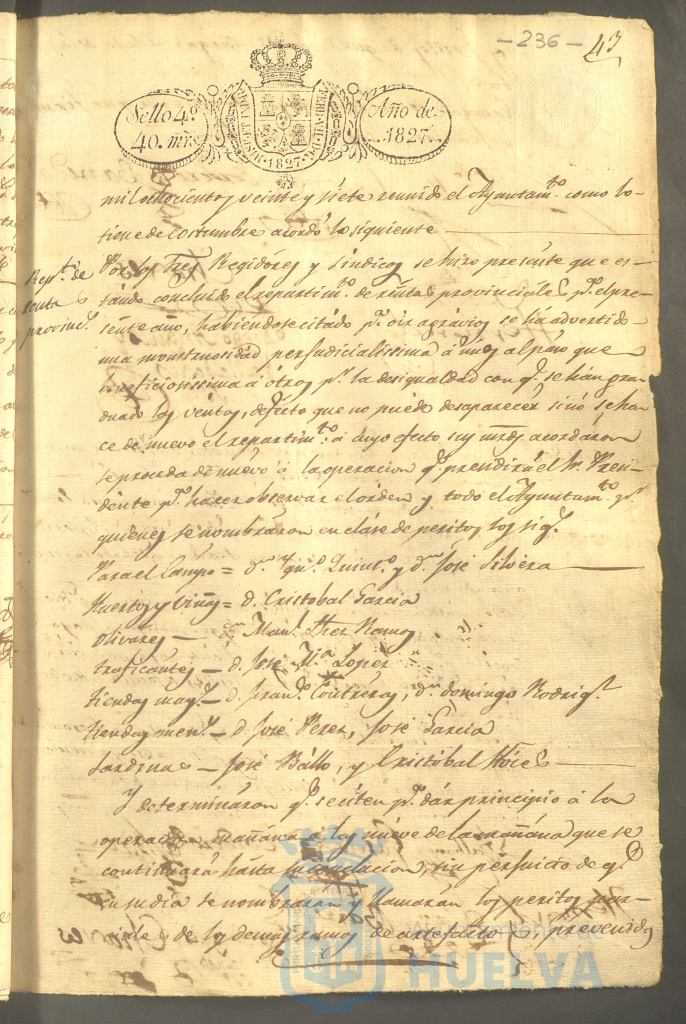 - 236 - 43
Sello 4º
40. mrs
HISPAN. ET IND. REX
1827
Año de
1827.
mil ochocientos veinte y siete reunido el Ayuntamto. como lo
tiene de costumbre acordó lo siguiente
Repto. de
rentas
provincs.
Por los Sres. Regidores y Síndicos se hizo presente que es-
tando concluido el repartimto. de rentas provinciales pr. el pre-
sente año, habiendose citado pr. oir agravios se ha advertido
una monstruosidad perjudicialissima á unos al paso que
beneficiosissima á otros pr. la desigualdad con qe. se han gra-
duado los ventos, defecto que no puede desaparecer sino se ha-
ce de nuevo el repartimto. á cuyo efecto sus mrds acordaron
se proceda de nuevo á la operacion qe. prendirá el Sr. Presi-
dente pa. hacer observar el órden y todo el Ayuntamto. pr.
quienes se nombraron en clase de peritos los sigs.
Para el Campo = Dn. Quinto. y dn. José Silvera
Huertos y viñas = D. Cristobal Garcia
Olivares — Manl. Ramos
traficantes — D. José Ma. Lopez
tiendas mays. — D. Franco. Contreras, Dn. domingo Rodrigz.
tiendas mens. — D. José Perez, José Garcia
Sardinas — José Ballo, y Cristóbal
Y determinaron qe. se citen pa. dar principio á la
operacion mañana á las nueve de la mañana que se
continuará hasta su conclucion, sin perjuicio de qe.
en su dia se nombraran y llamarán los peritos par-
ciales de los demas ramos de artefactos, prevenidos
HUELVA